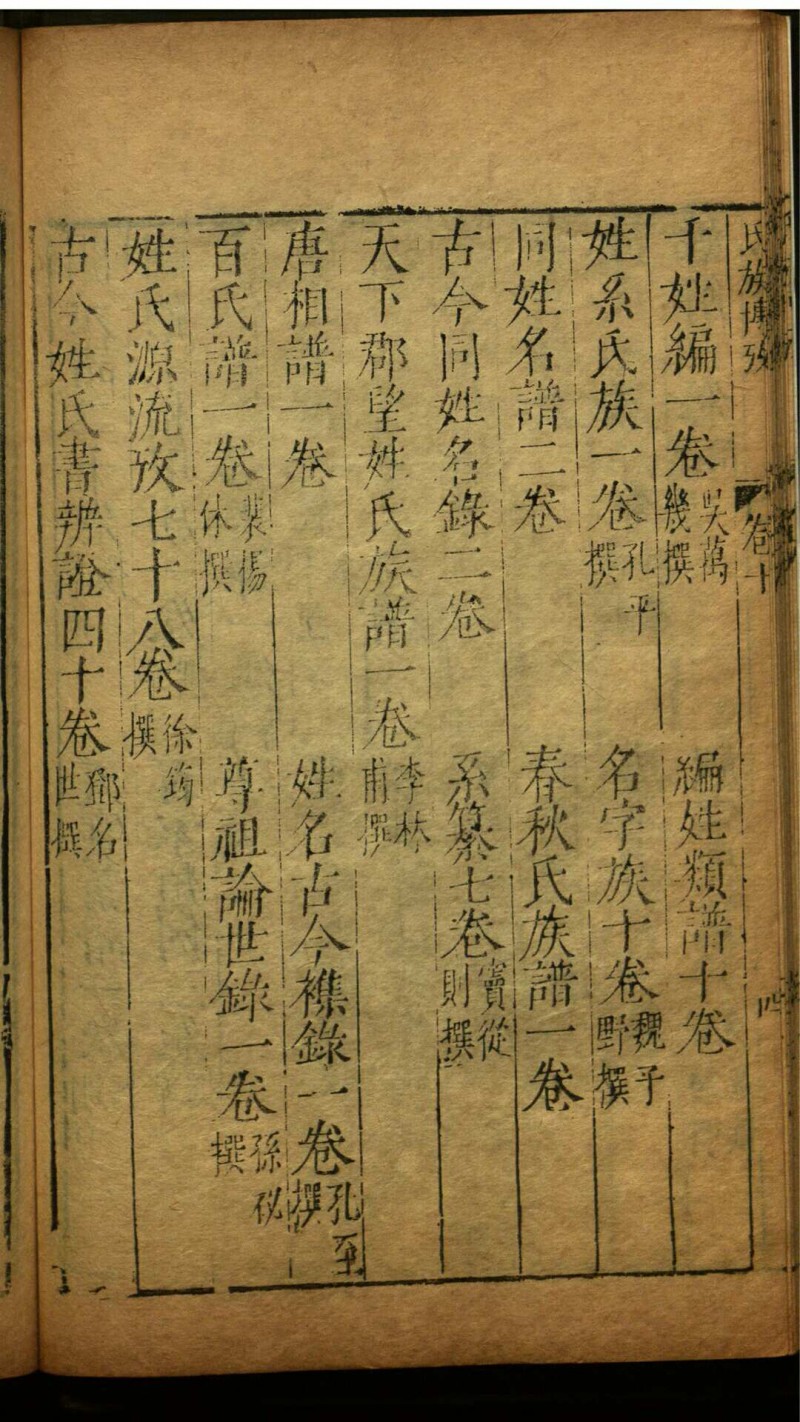 氏族博攷 卷十 四
千姓編一卷 吳萬幾撰 編姓類譜十卷
姓系氏族一卷 孔平撰 名字族十卷 魏予野撰
同姓名譜二卷 春秋氏族譜一卷
古今同姓名錄二卷 系纂七卷 竇從則撰
天下郡望姓氏族譜一卷 李林甫撰
唐相譜一卷 姓名古今襍錄一卷 孔至撰
百氏譜一卷 裴揚休撰 尊祖論世錄一卷 孫祕撰
姓氏源流攷七十八卷 徐筠撰
古今姓氏書辨證四十卷 鄧名世撰